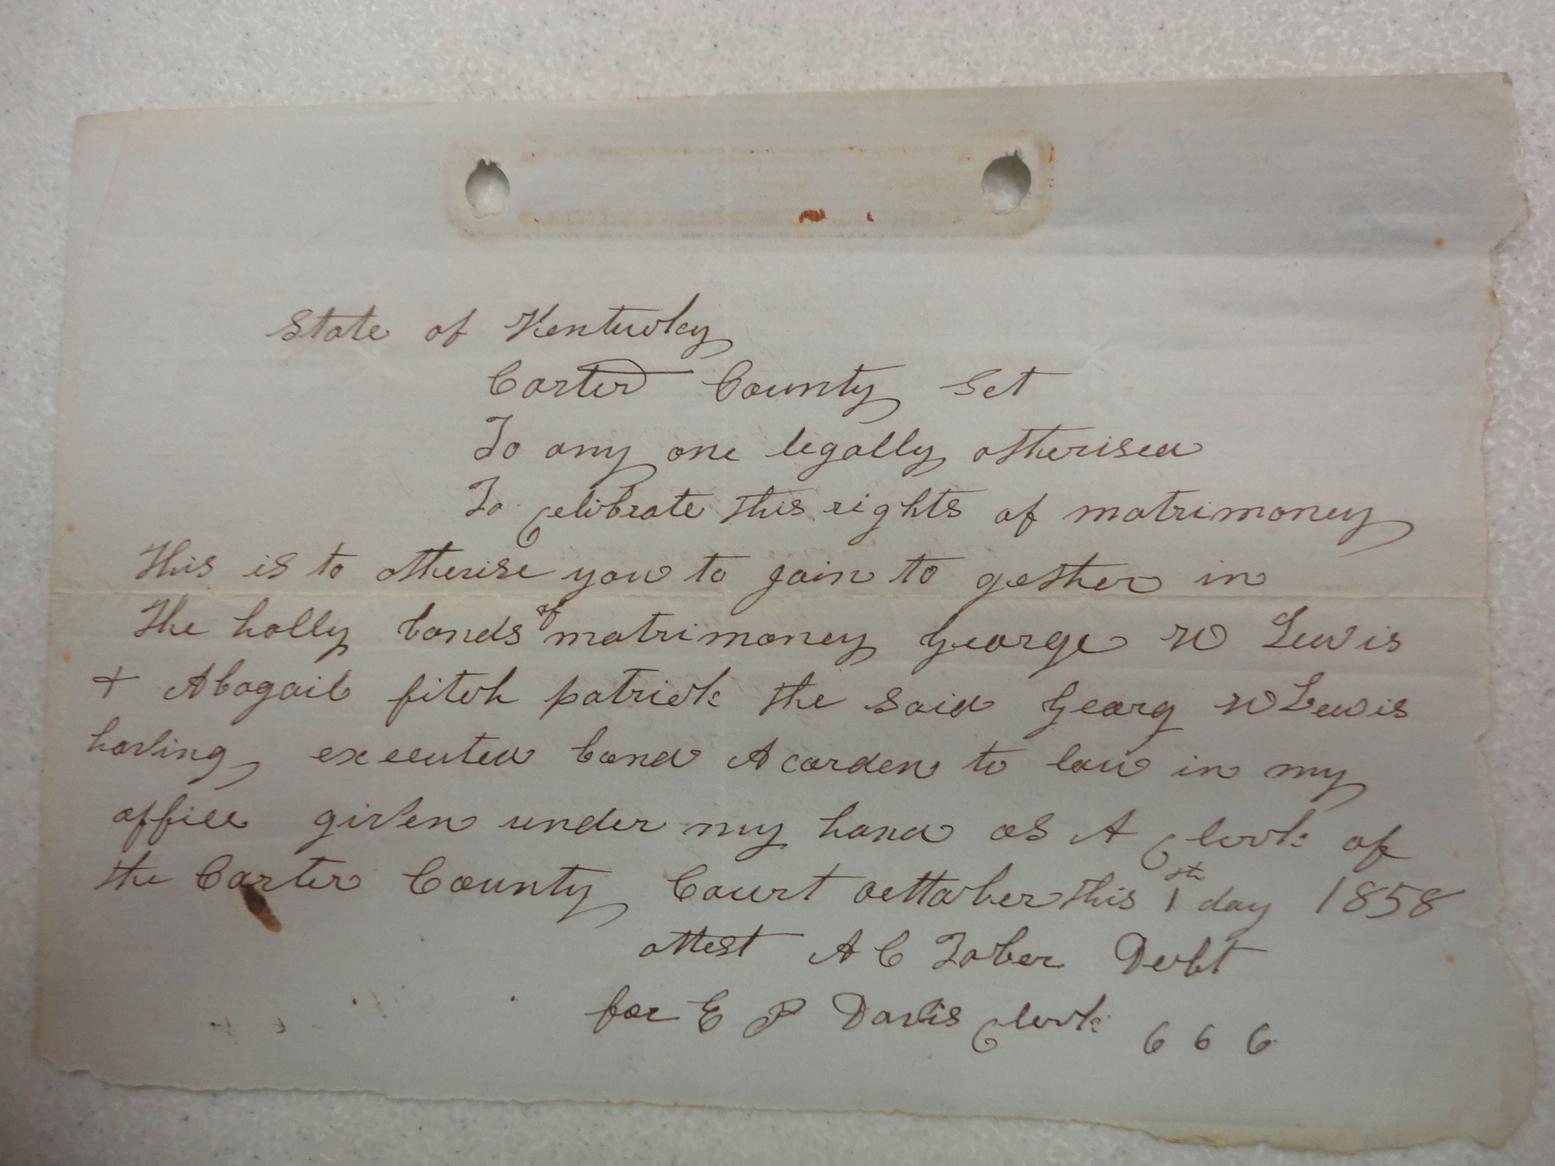 State of Kentucky
Carter County Sct
To any one legally otherised
To Celibrate this rights of matrimoney
this is to otherise you to join to gether in
the holly bonds of matrimoney George W Lewis
+ Abagail fitch patrick the said Georg W Lewis
having executed bond Acorden to law in my
office given under my hand as A Clerk of
the Carter County Court octtober this 1st day 1858
attest A C Tober Debt
for E P Davis Clerk 6 6 6